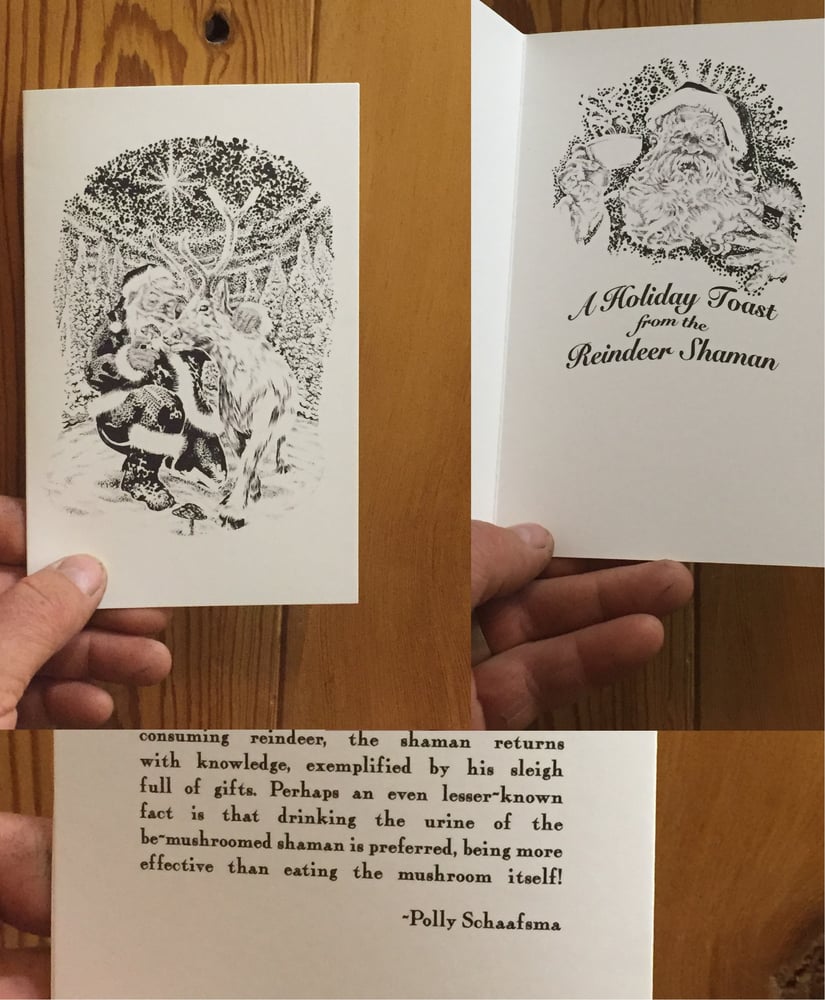 A Holiday Toast
from the
Reindeer Shaman
consuming reindeer, the shaman returns
with knowledge, exemplified by his sleigh
full of gifts. Perhaps an even lesser~known
fact is that drinking the urine of the
be~mushroomed shaman is preferred, being more
effective than eating the mushroom itself!
~Polly Schaafsma